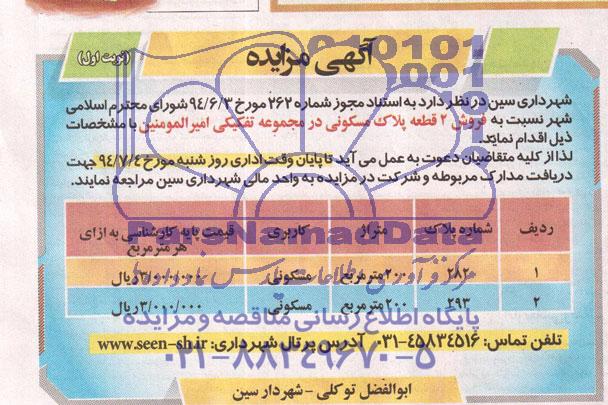 آگهی مزایده
(نوبت اول)
شهرداری سین در نظر دارد به استناد مجوز شماره ۲۶۲ مورخ ۹۴/۶/۳ شورای محترم اسلامی
شهر نسبت به فروش ۲ قطعه پلاک مسکونی در مجموعه تفکیکی امیرالمومنین با مشخصات
ذیل اقدام نماید.
لذا از کلیه متقاضیان دعوت به عمل می آید تا پایان وقت اداری روز شنبه مورخ ۹۴/۷/۴ جهت
دریافت مدارک مربوطه و شرکت در مزایده به واحد مالی شهرداری سین مراجعه نمایند.
ردیف شماره پلاک متراژ کاربری قیمت پایه کارشناسی به ازای
هر مترمربع
۱ ۲۸۲ ۲۰۰ مترمربع مسکونی ۳/۰۱۰/۰۰۰ ریال
۲ ۲۹۳ ۲۰۰ مترمربع مسکونی ۳/۰۱۰/۰۰۰ ریال
ParsNamadData
پایگاه اطلاع رسانی مناقصه و مزایده
تلفن تماس: ۴۵۸۳۴۵۱۶-۰۳۱ آدرس پرتال شهرداری: www.seen-sh.ir
۰۲۱-۸۸۳۴۹۶۷۰-۵
ابوالفضل توکلی - شهردار سین